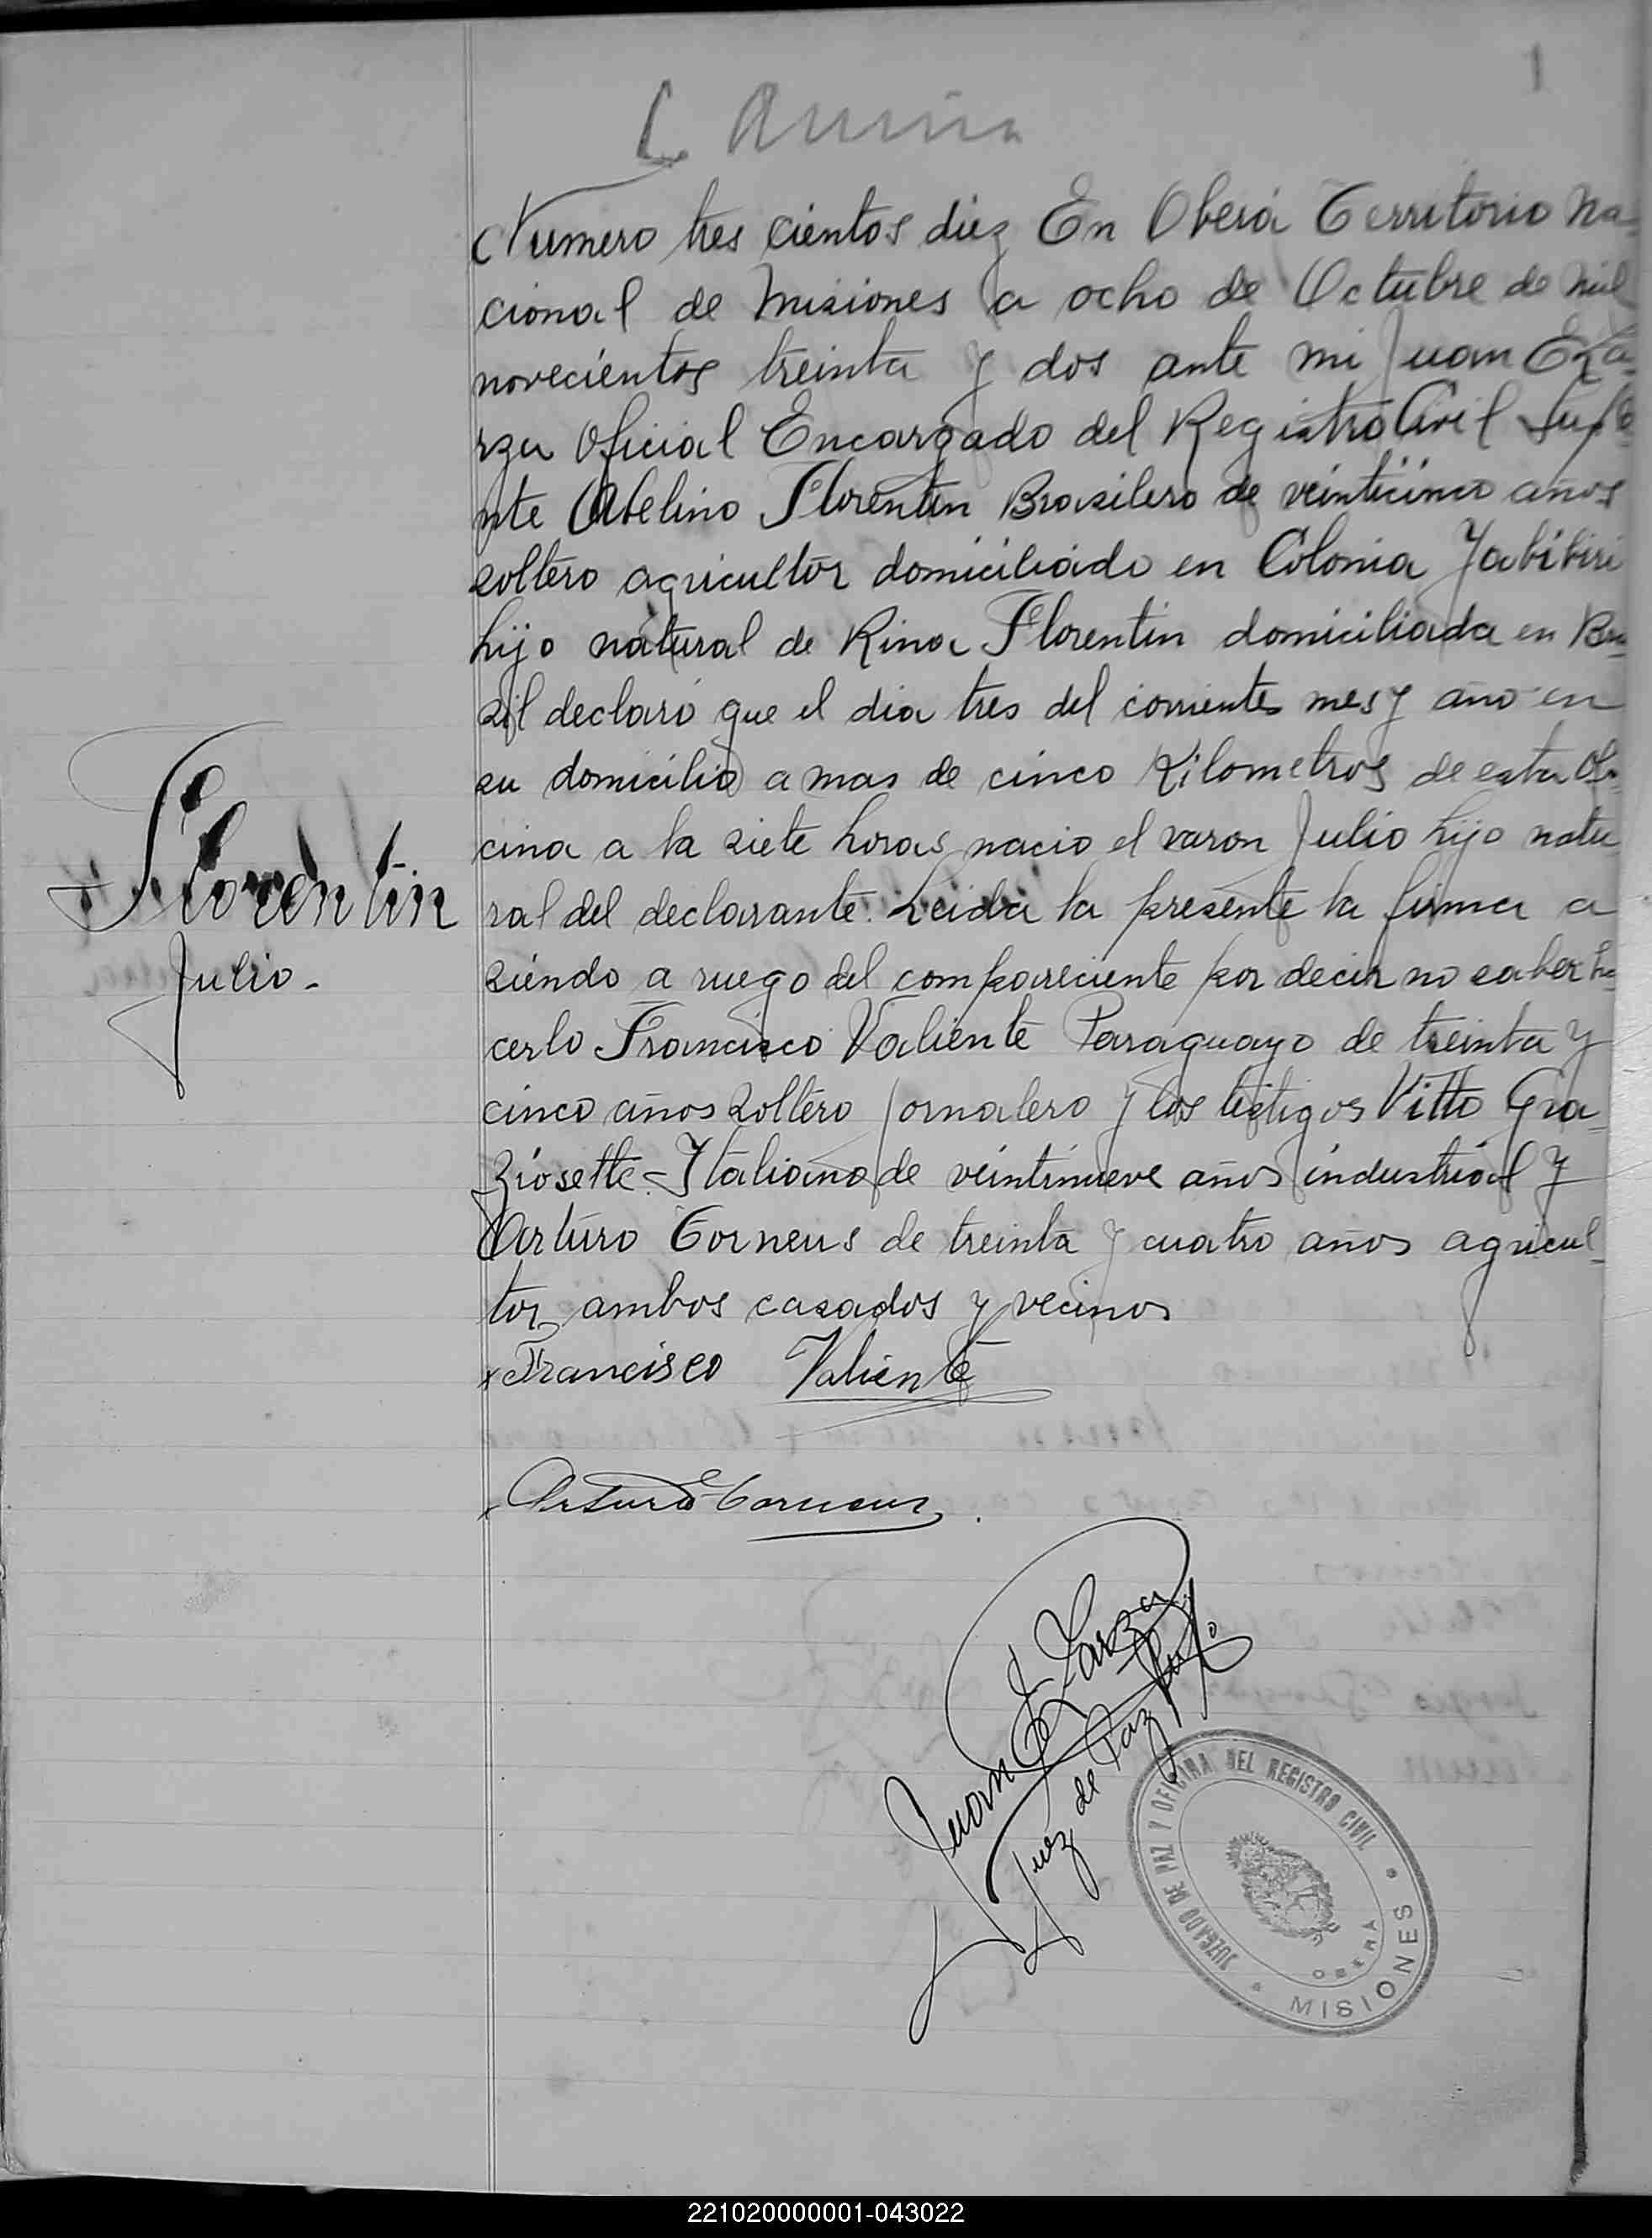 1
Numero tres cientos diez En Oberá Territorio Na-
cional de Misiones a ocho de Octubre de mil
novecientos treinta y dos ante mi Juan E Za-
rza Oficial Encargado del Registro Civil Suple
nte Abelino Florentin Brasilero de veinticinco años
soltero agricultor domiciliado en Colonia Yabibiri
hijo natural de Rina Florentin domiciliada en Bra-
sil declaró que el dia tres del corriente mes y año en
su domicilio a mas de cinco Kilometros de esta Ofi-
cina a la siete horas nacio el varon Julio hijo natu-
Florentin
Julio.-
ral del declarante. Leida la presente la firma a
siendo a ruego del compareciente por decir no saber ha-
cerlo Francisco Valiente Paraguayo de treinta y
cinco años soltero jornalero y los testigos Vitto Gra-
ziosette - Italiano de veintinueve años industrial y
Arturo Corneus de treinta y cuatro años agricul-
tor ambos casados y vecinos
x Francisco Valiente
x Arturo Corneus
Juan E Zarza
Juez de Paz
JUZGADO DE PAZ Y OFICINA DEL REGISTRO CIVIL
OBERA
MISIONES
221020000001-043022